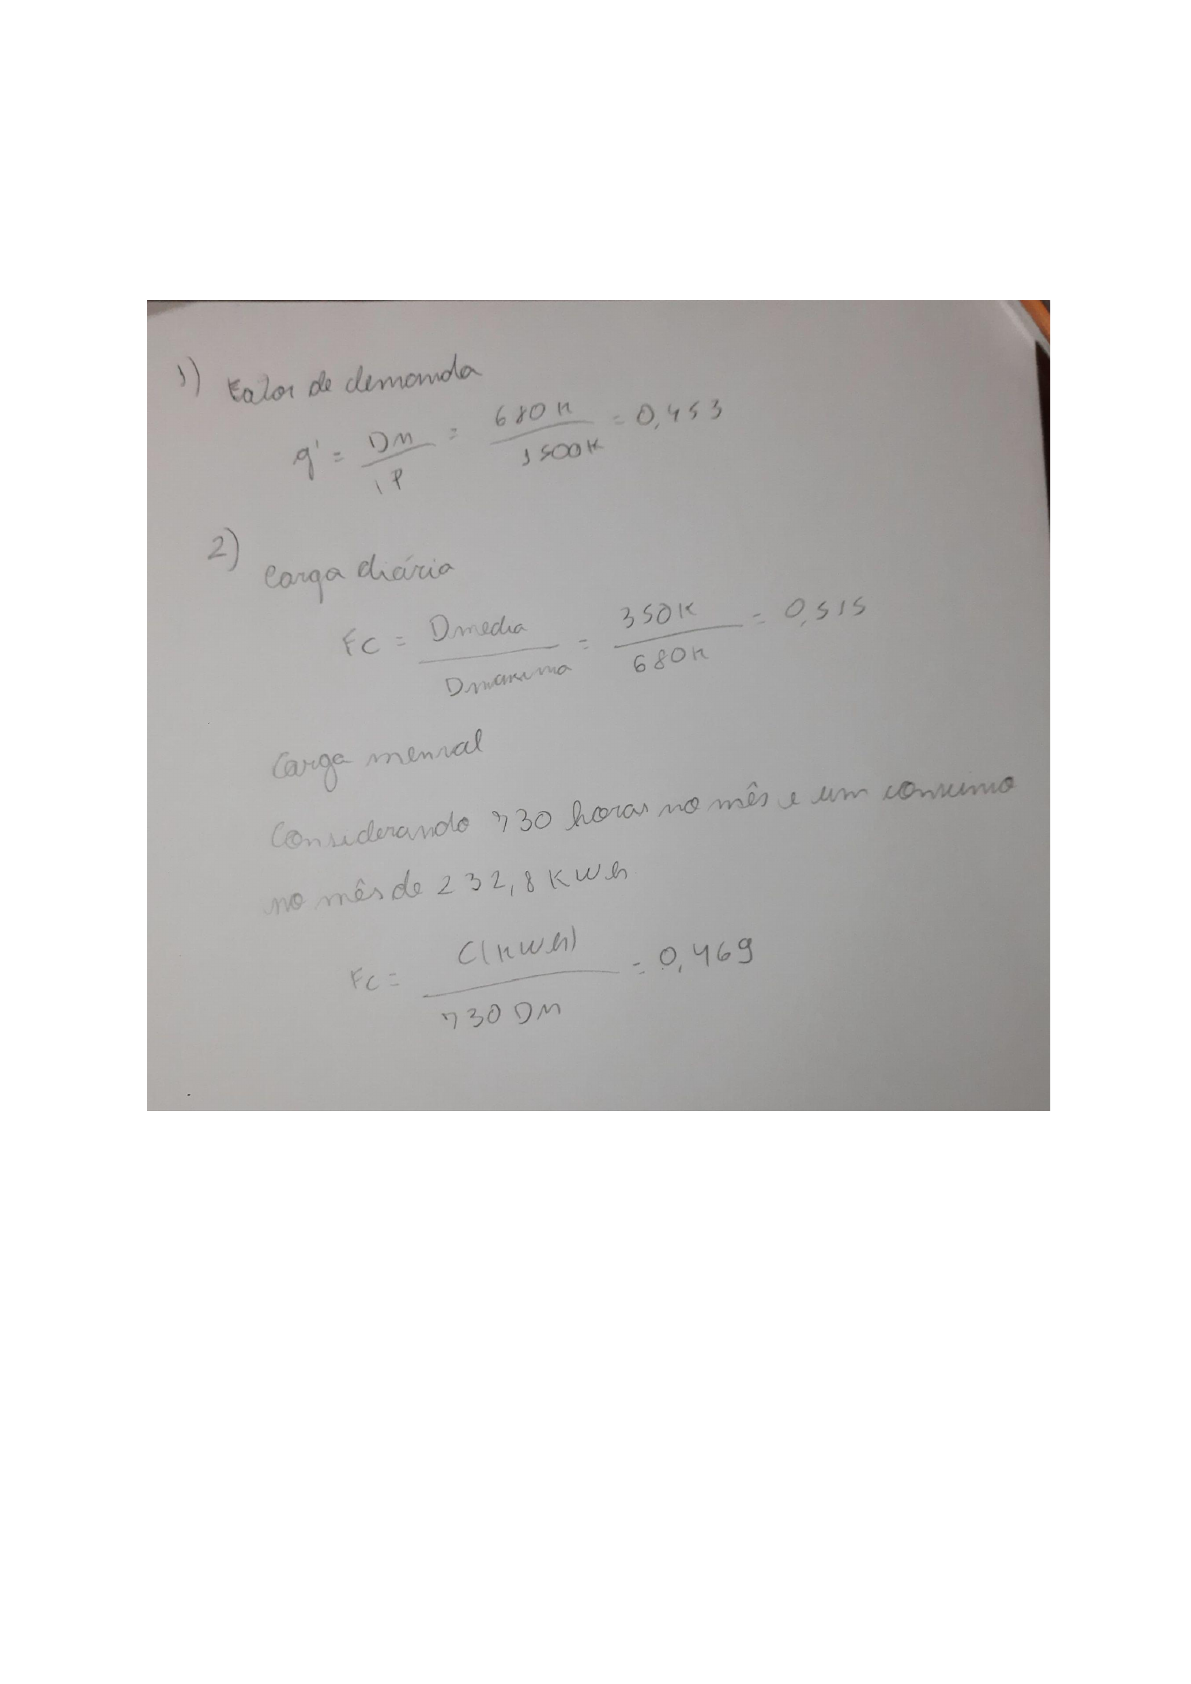 1) Fator de demanda
g' = DM / iP = 680K / 1500K = 0,453
2)
Carga diária
FC = Dmedia / Dmaxima = 350K / 680K = 0,515
Carga mensal
Considerando 730 horas no mês e um consumo
no mês de 232,8 KWh
FC = C(KWh) / 730 DM = 0,469